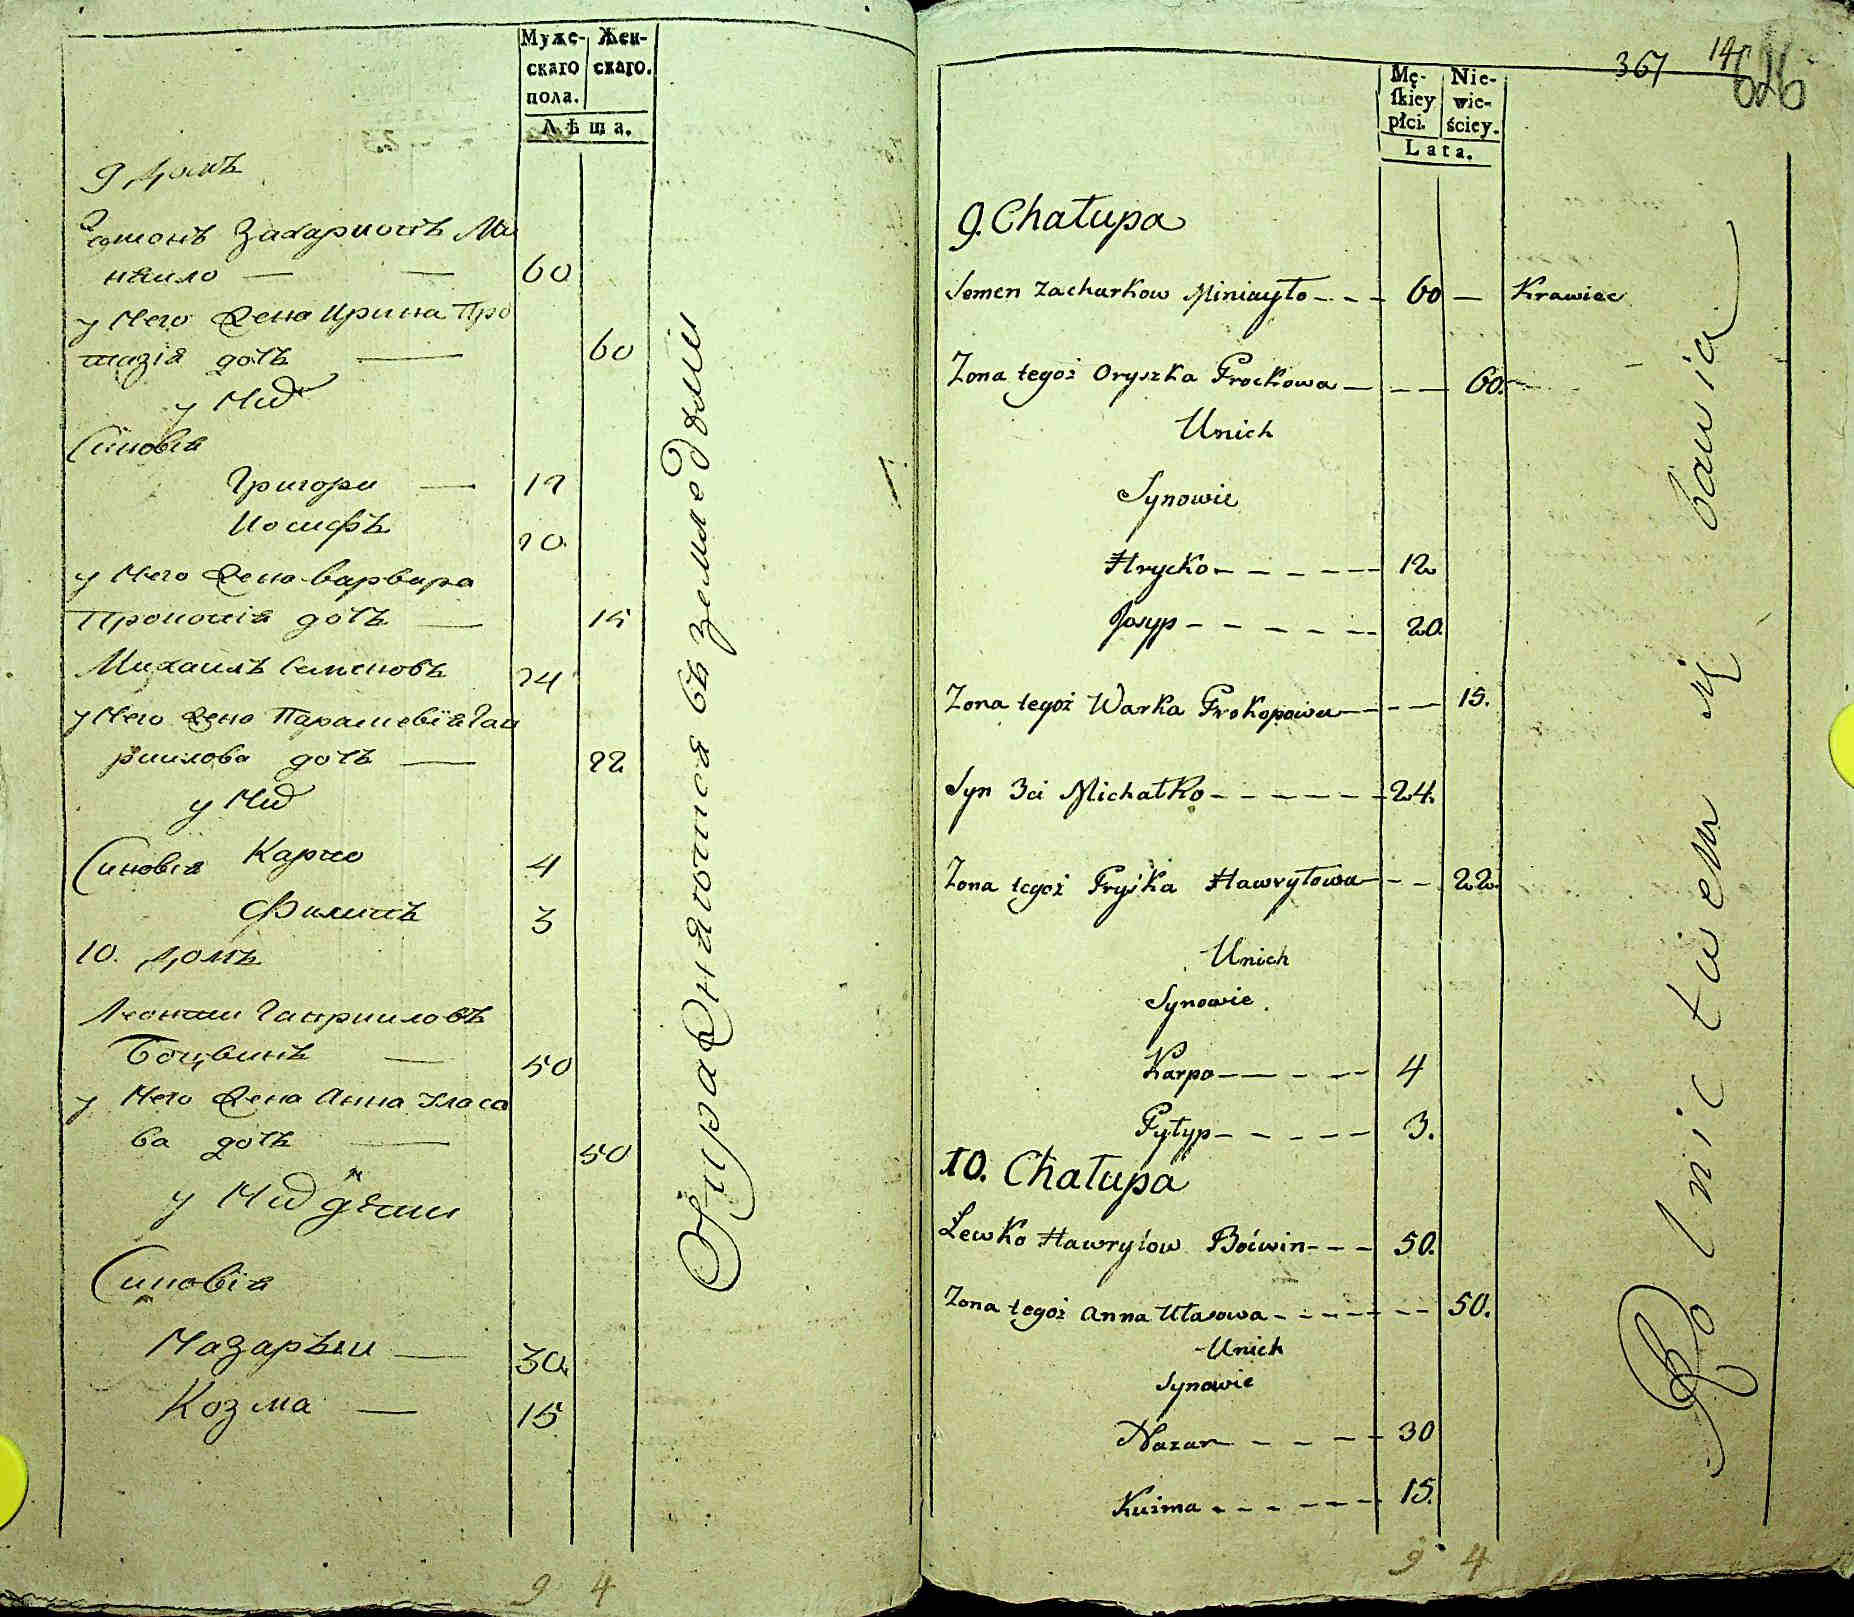 Муже- Жен-
скаго скаго.
пола.
Лѣта.
9 Домъ
Семонъ Захариовъ Ми
няило — — 60
у Него Жена Ирина Про
тазія дочь — 60
у Них
Синовія
Григори — 12
Иосифъ 20.
у Него Жена Варвара
Прокопія дочь — 15
Михаилъ Семеновъ 24
у Него Жена Парасковія Гав
риилова дочь — 22
у Них
Синовія Карпо 4
Филипъ 3
10. Домъ
Леонти Гаврииловъ
Боцвинъ — 50
у Него Жена Анна Уласо
ва дочь — 50
у Них дѣти
Синовія
Назарѣи — 30.
Козма — 15
9 4
Упражняются въ земледѣлии
367
626
Mę- Nie-
skiey wie-
płci. ściey.
Lata.
9. Chałupa
Semen Zacharkow Miniayło - - - 60 — Krawiec
Zona tegoż Oryszka Prockowa — - - — 60.
Unich
Synowie
Hrycko - - - - - - 12
Josyp - - - - - - 20.
Zona tegoż Warka Prokopowa - - - — 15.
Syn 3ci Michałko - - - - - - 24.
Zona tegoż Pryśka Hawryłowa - - - 22.
Unich
Synowie
Karpo - - - - - - 4
Pyłyp - - - - - - 3.
10. Chałupa
Lewko Hawryłow Boćwin - - - 50.
Zona tegoż Anna Ułasowa - - - - - - - 50.
Unich
Synowie
Nazar - - - - - 30
Kuźma - - - - - - - 15.
9 4
Rolnictwem się bawią